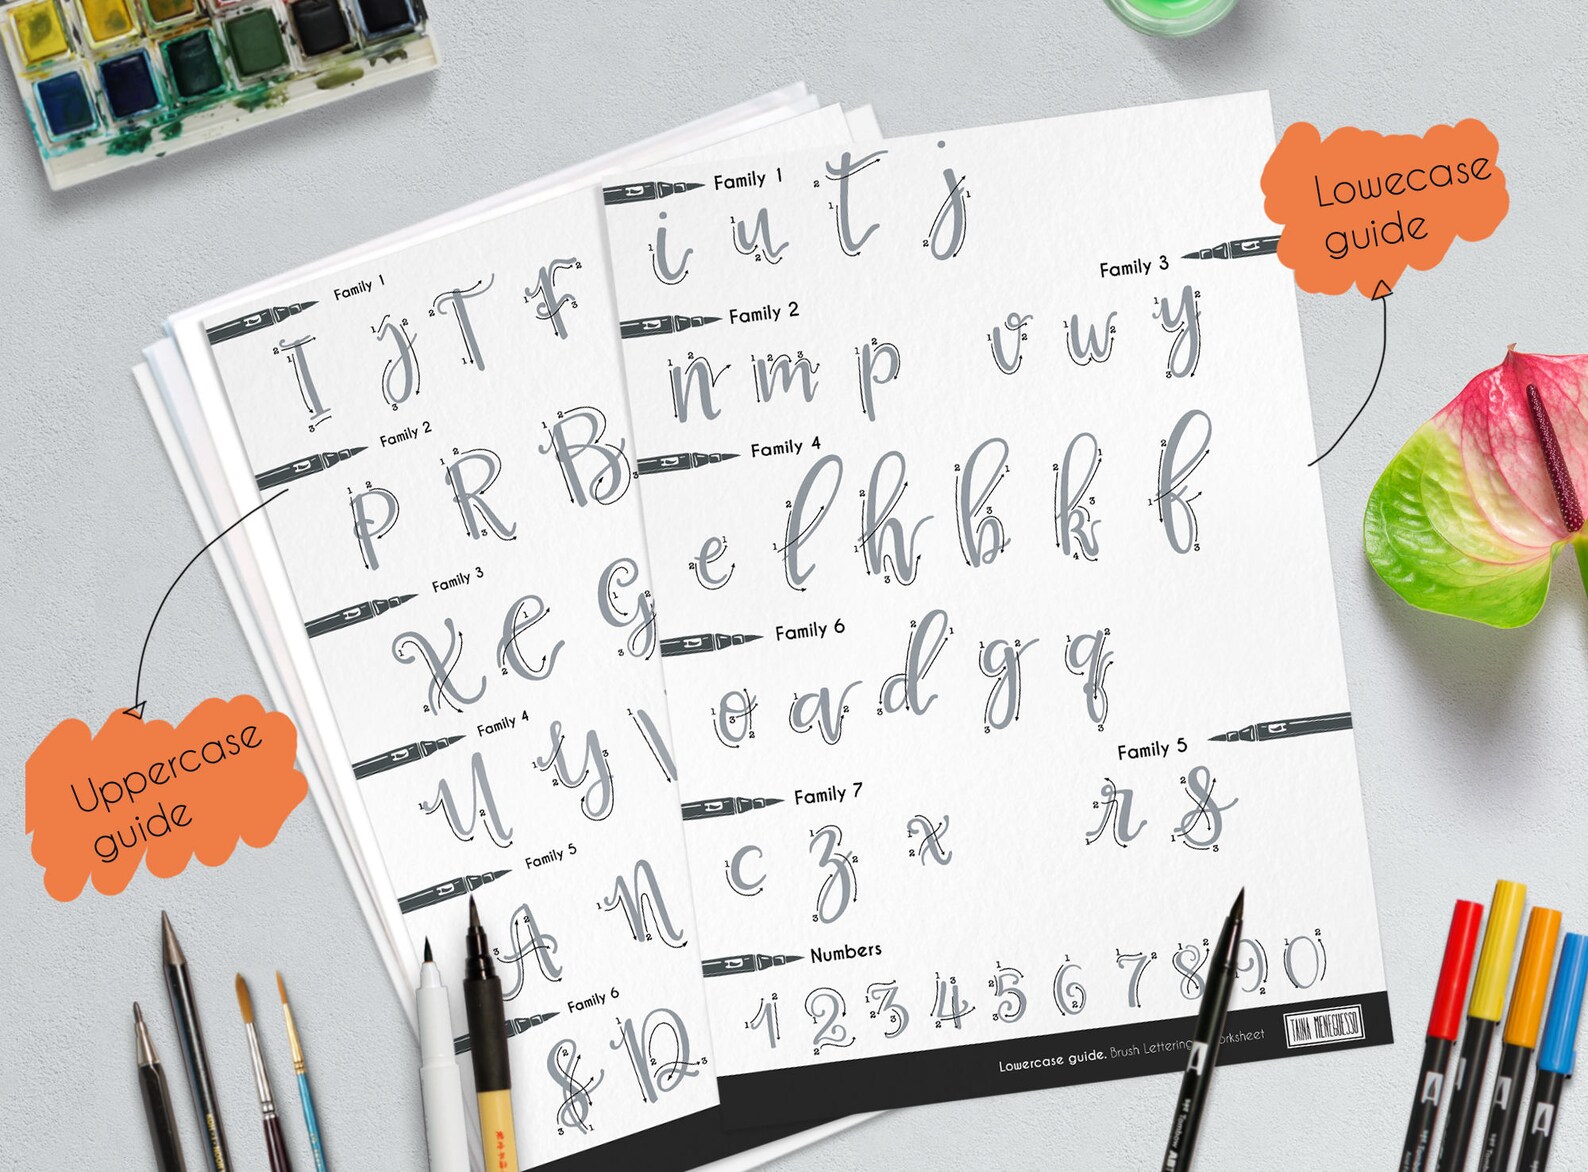 Lowecase
guide
Uppercase
guide
Family 1
I J T F
Family 2
P R B
Family 3
X E G
Family 4
U Y
Family 5
A N
Family 6
S D
Family 1
i u t j
Family 2
n m p
Family 3
v w y
Family 4
e l h b k f
Family 6
o a d g q
Family 5
r s
Family 7
c z x
Numbers
1 2 3 4 5 6 7 8 9 0
Lowercase guide. Brush Lettering
TAINA MENEGUESSO